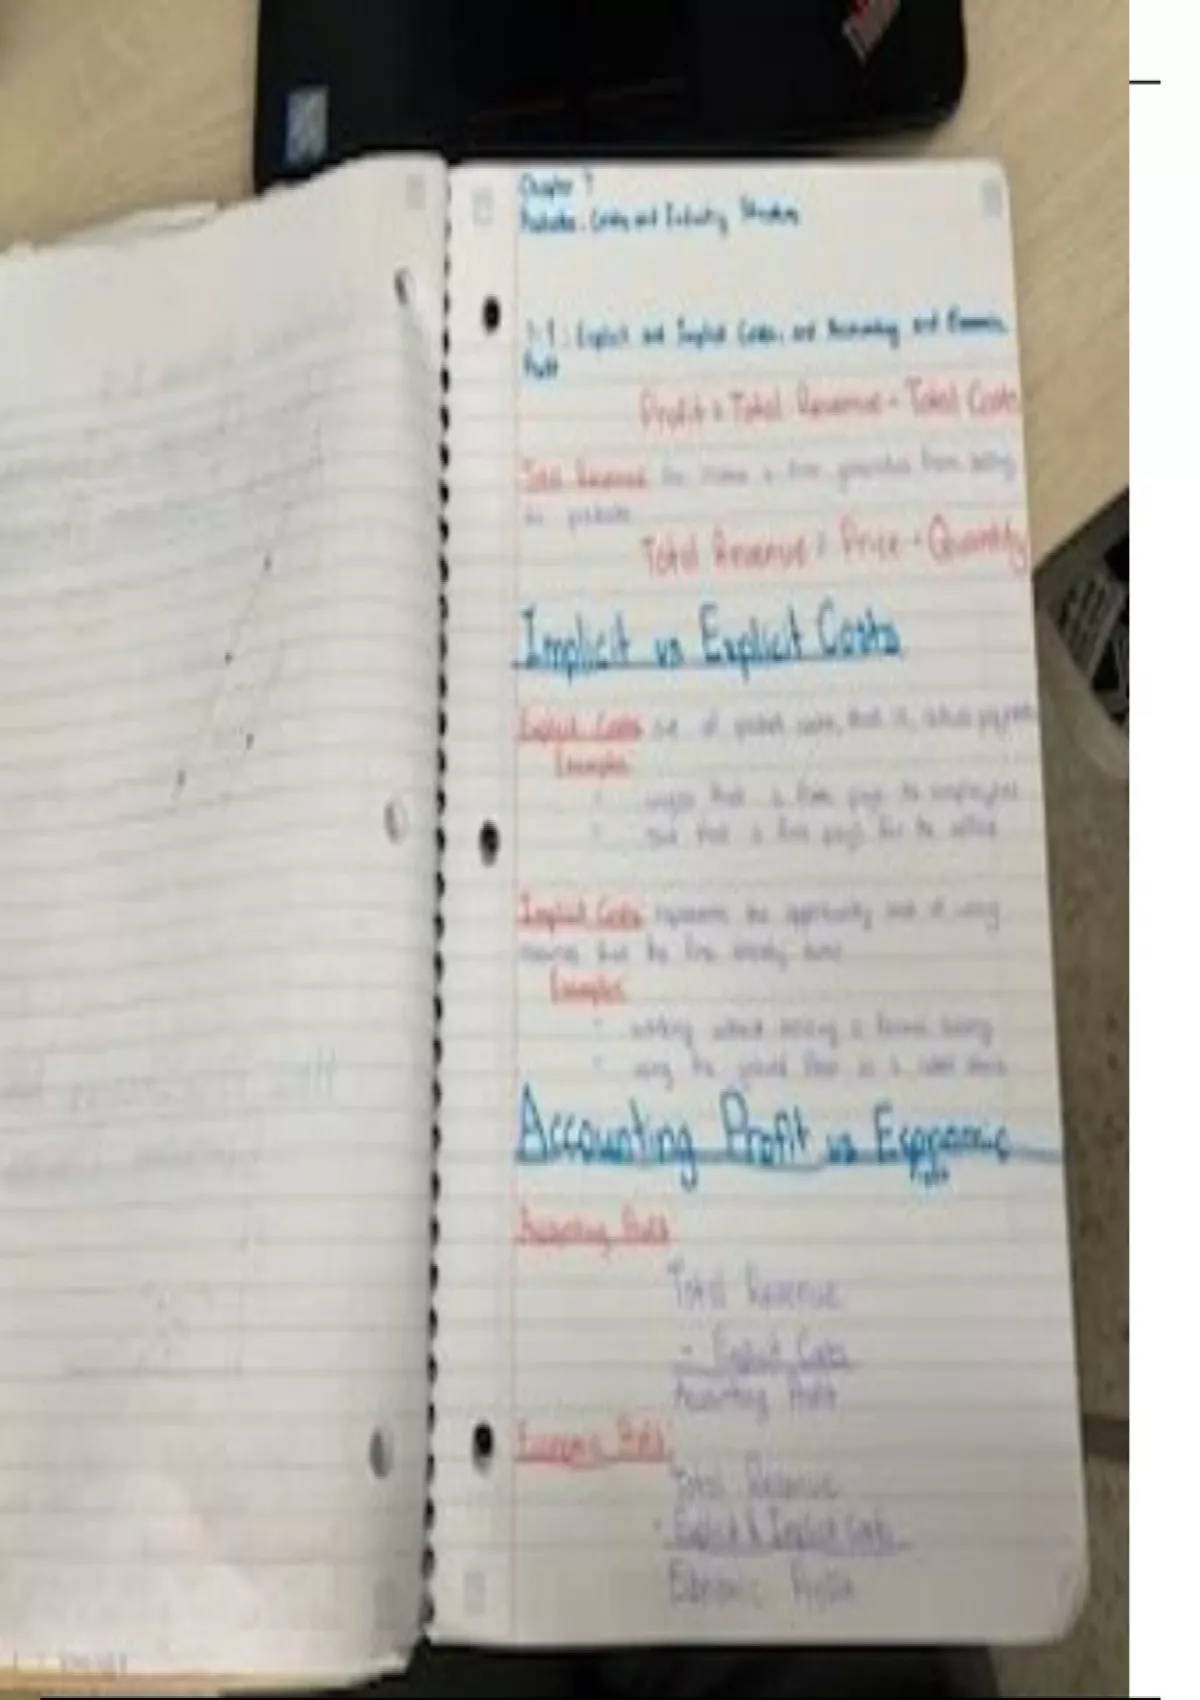 Chapter 7
Production, Costs, and Industry Structure
7.1: Explicit and Implicit Costs, and Accounting and Economic
Profit
Profit = Total Revenue - Total Costs
Total Revenue: the income a firm generates from selling
its products
Total Revenue = Price · Quantity
Implicit vs Explicit Costs
Explicit Costs: out of pocket costs, that is, actual payments
Examples
wages that a firm pays its employees
rent that a firm pays for its office
Implicit Costs: represents the opportunity cost of using
resources that the firm already owns
Examples
working without earning a formal salary
using the ground floor as a retail store
Accounting Profit vs Economic
Profit
Accounting Profit
Total Revenue
- Explicit Costs
Accounting Profit
Economic Profit
Total Revenue
- Explicit & Implicit Costs
Economic Profit